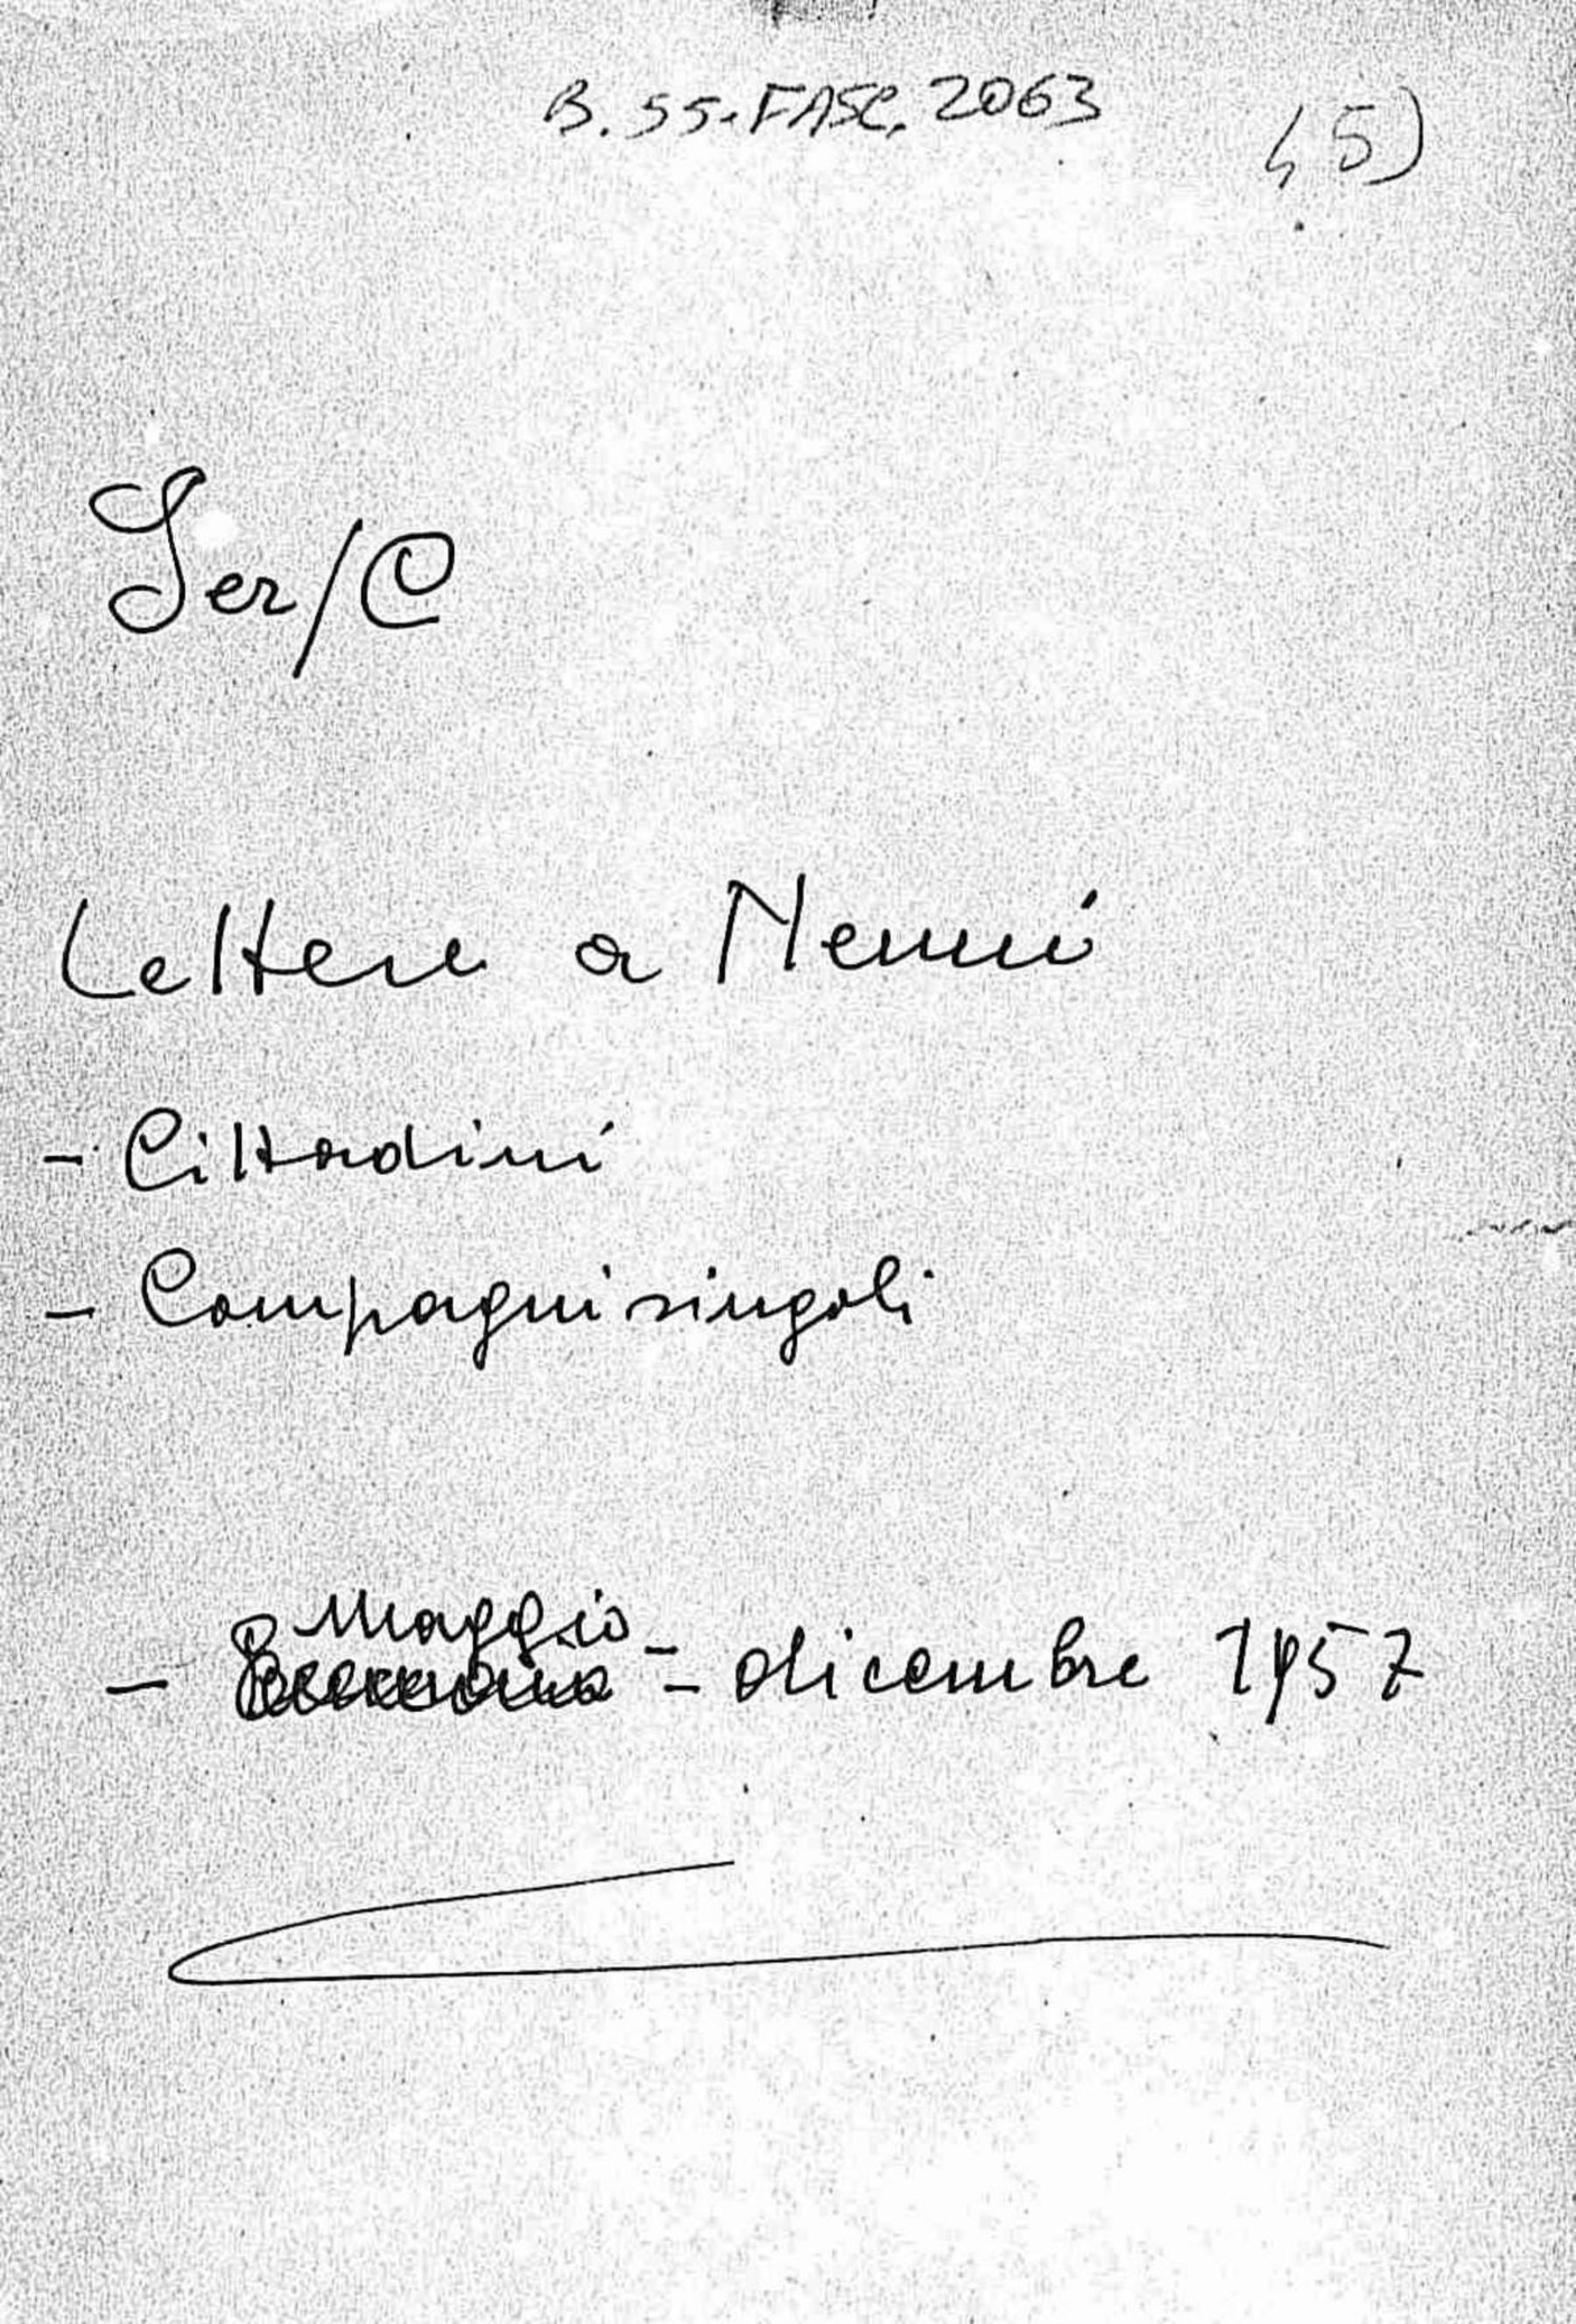 B. 55. FASC. 2063
(5)
Ser/C
Lettere a Nenni
- Cittadini
- Compagni singoli
Maggio
- - dicembre 1957